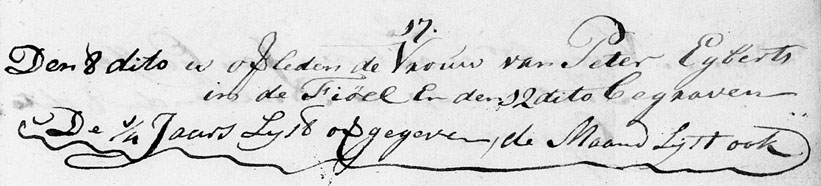 17.
Den 8 dito is ofleden de Vrouw van Peter Eyberts
in de Fiöel En den 12 dito Begraven
De 1/4 Jaars Lyst of gegeven, de Maand Lyst ook